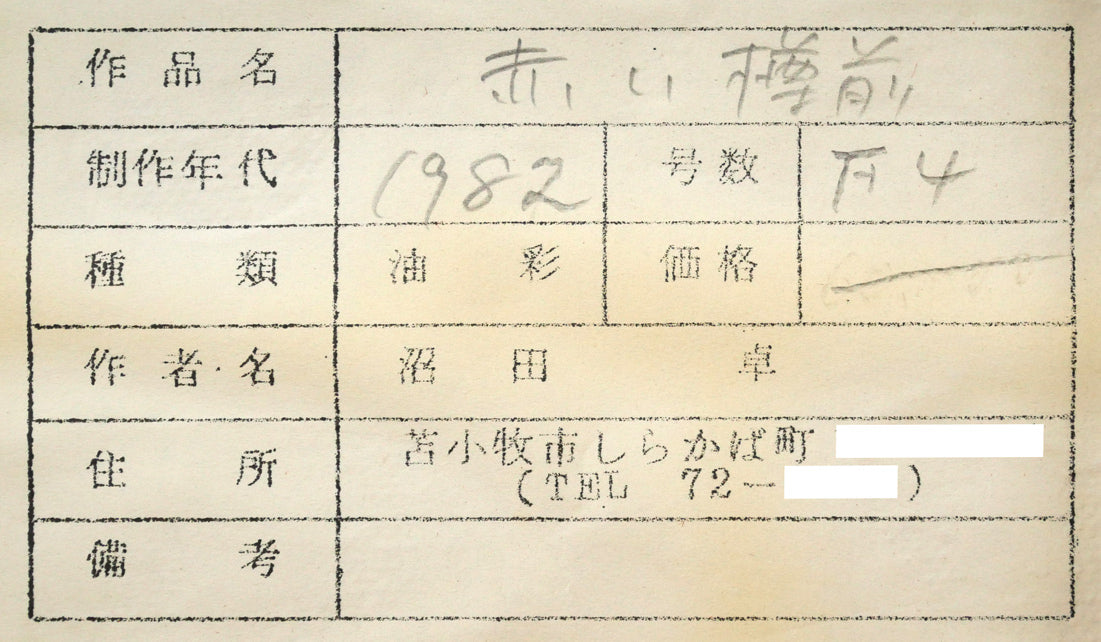 作品名 赤い樽前
制作年代 1982 号数 F4
種類 油彩 価格
作者名 沼田 卓
住所 苫小牧市しらかば町
(TEL 72― )
備考